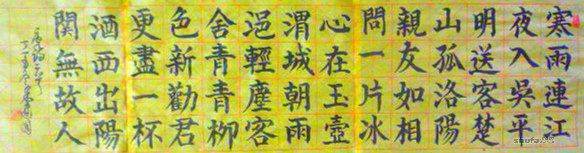 寒雨連江
夜入吳平
明送客楚
山孤洛陽
親友如相
問一片冰
心在玉壺
渭城朝雨
浥輕塵客
舍青青柳
色新勸君
更盡一杯
酒西出陽
關無故人